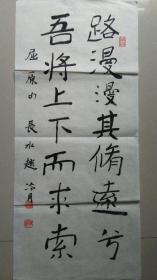 路漫漫其脩遠兮
吾將上下而求索
屈原句 長水趙冷月